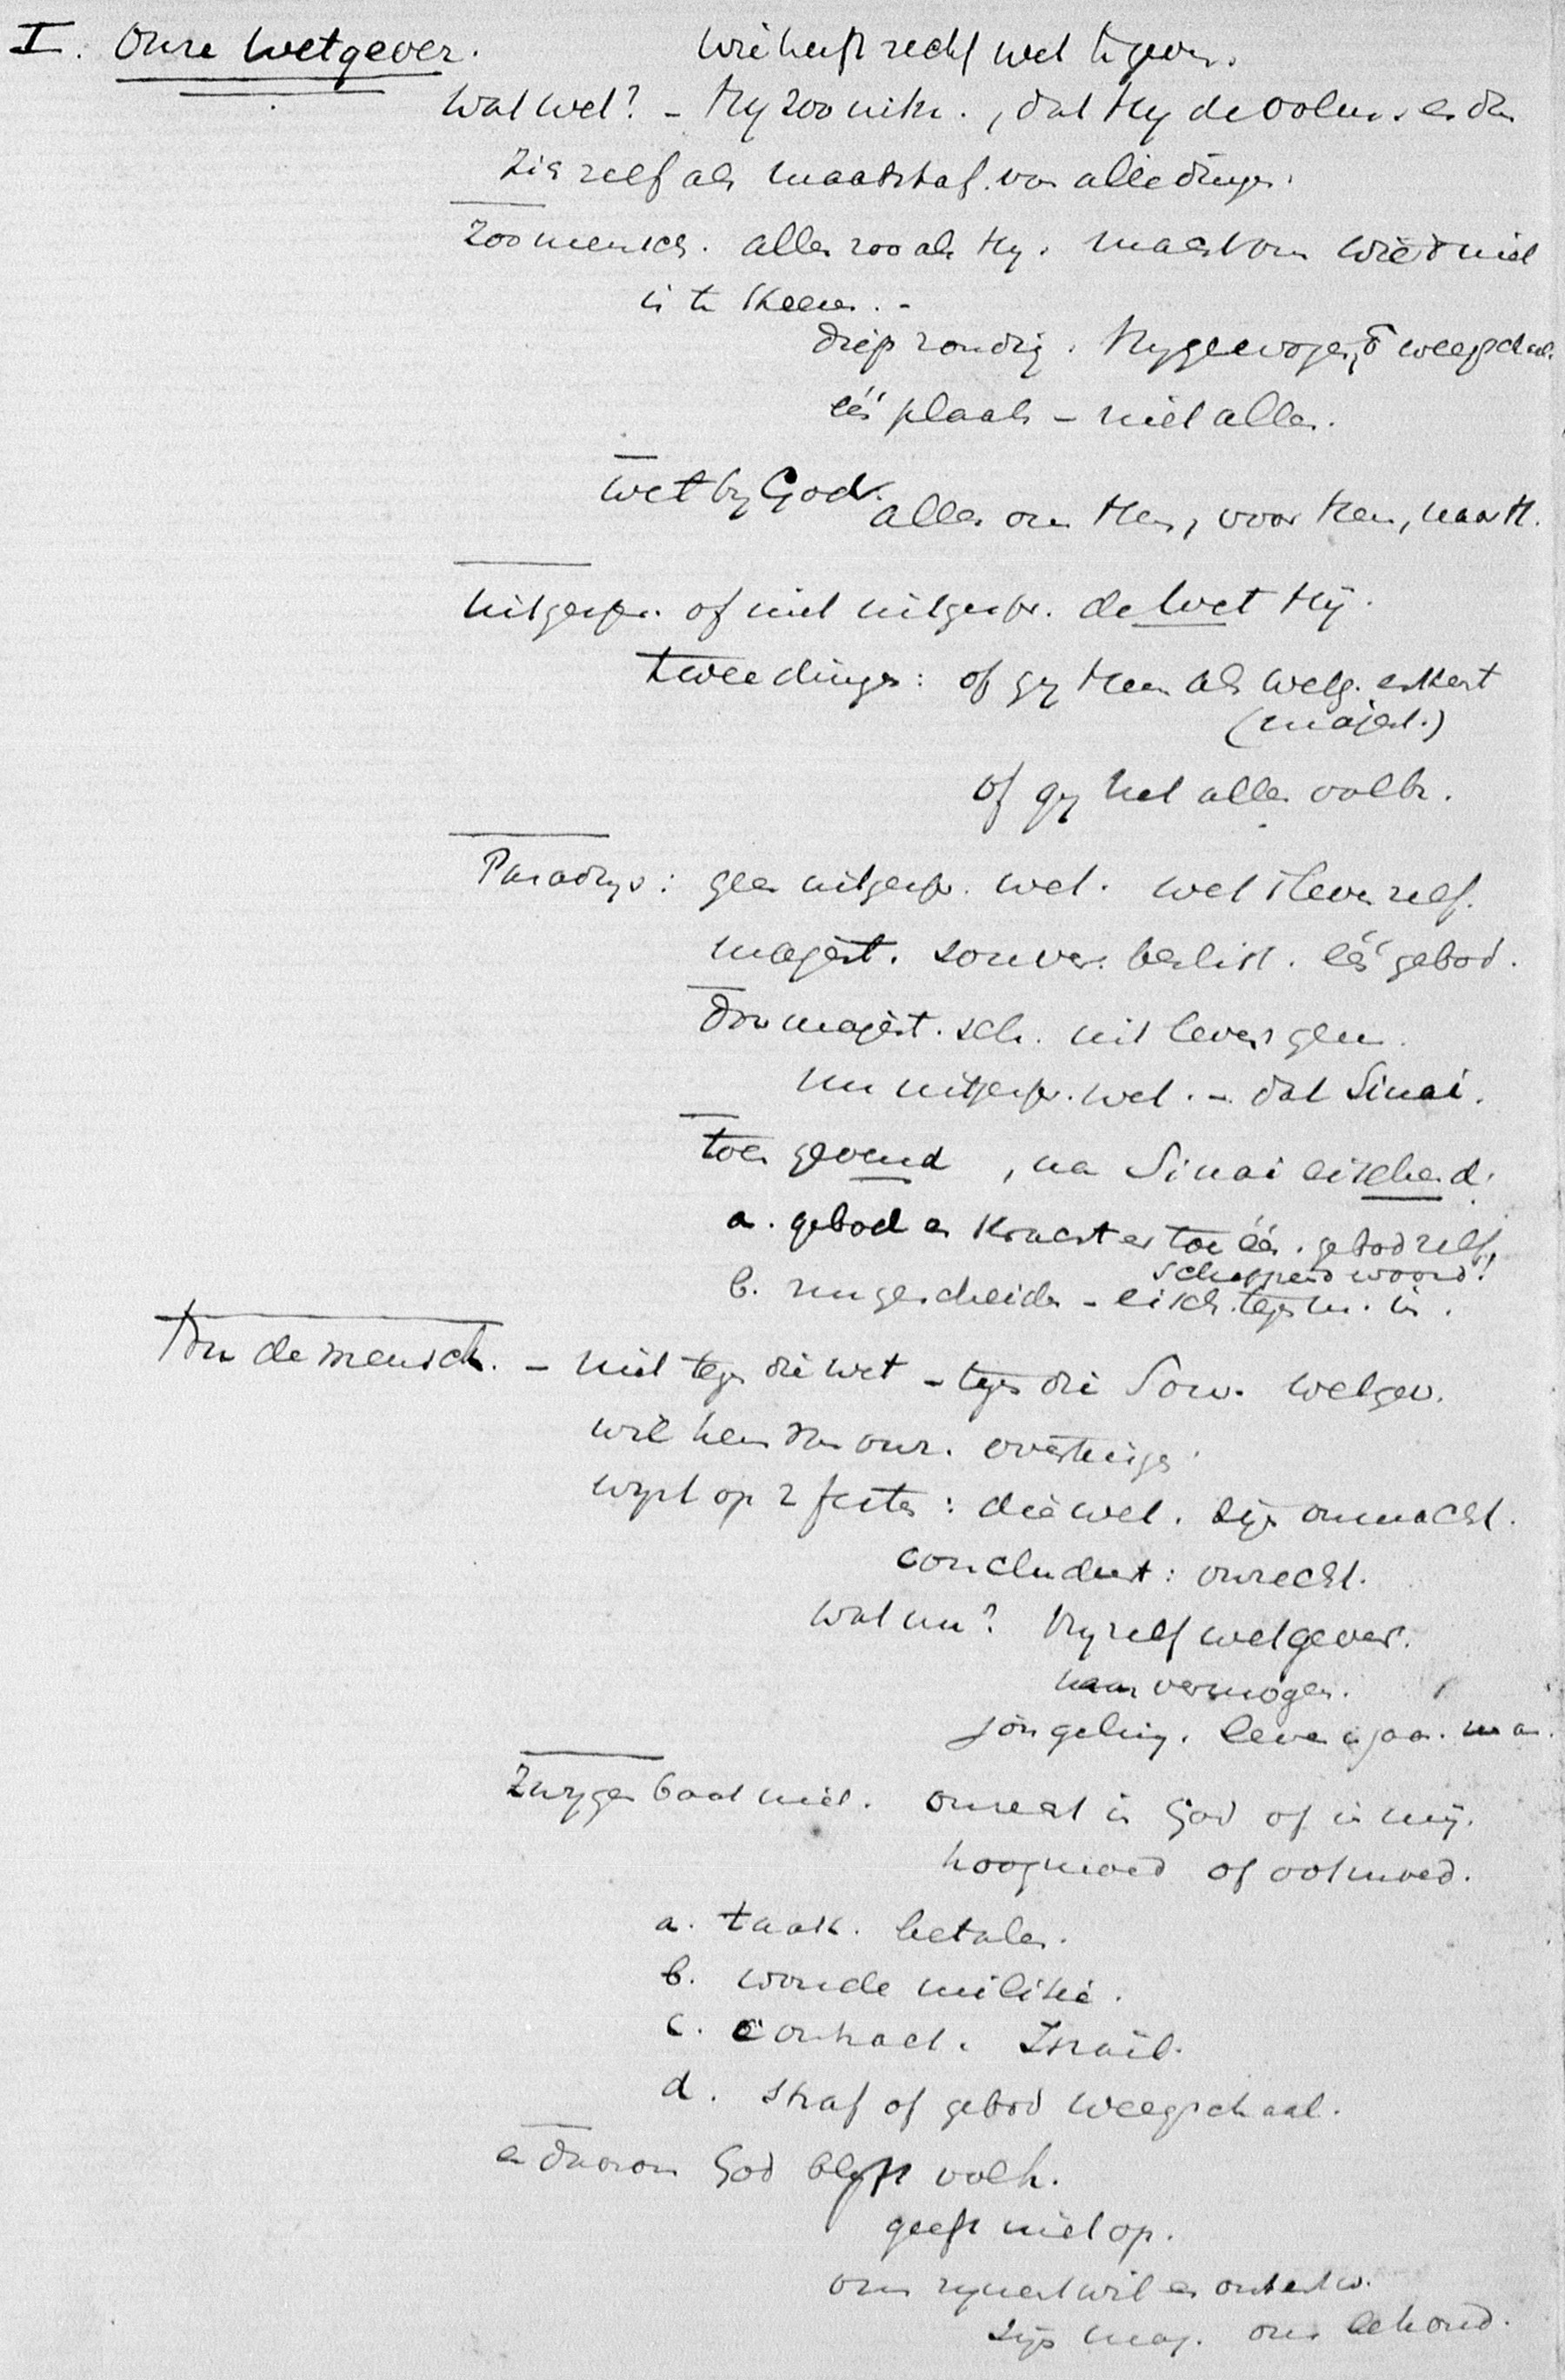 I. Onze Wetgever. Wie heeft recht wet te geven.
Wat wet? - Hy zoo niku. , dat Hy de volm. en dan
Zich zelf als maatstaf van alle dingen.
Zoo mensch. alles zoo als Hy. maatvorm wie d niet
in te
diep zondig. Hy gewogen, weegschaal.
één plaats - niet alles.
Wet by God. alles om Hem, voor Hem, naar H.
Uitgespr. of niet uitgespr. de Wet Hij.
twee dingen: of gy Hem als Wetg. erkent
(majest.)
of gy het alles volbr.
Paradys: geen uitgespr. wet. wet 't leven zelf.
majest. souver. beslist. één gebod.
Door majest. sch. uit leven geen.
nu uitgespr. wet. - dat Sinai.
toen gevend, na Sinai eischend.
a. gebod en kracht er toe één. gebod zelf
scheppend woord!
b. nu gescheiden - eisch. tegen in.
Nu de mensch. - niet tegen die wet - tegen die Souv. Wetgev.
wil hem van onr. overtuigen.
wyst op 2 feiten: die wet. zijn onmacht.
concludeert: onrecht.
Wat nu? Hy zelf wetgever.
naar vermogen.
jongeling.
Zwygen baat niet. onrecht in God of in mij.
hoogmoed of ootmoed.
a. taak. betalen.
b. wonde militie.
c. contract. Israël.
d. straf of gebod weegschaal.
en daarom God blyft volh.
geeft niet op.
om zynentwil en ontentw.
zijn maj. ons behoud.